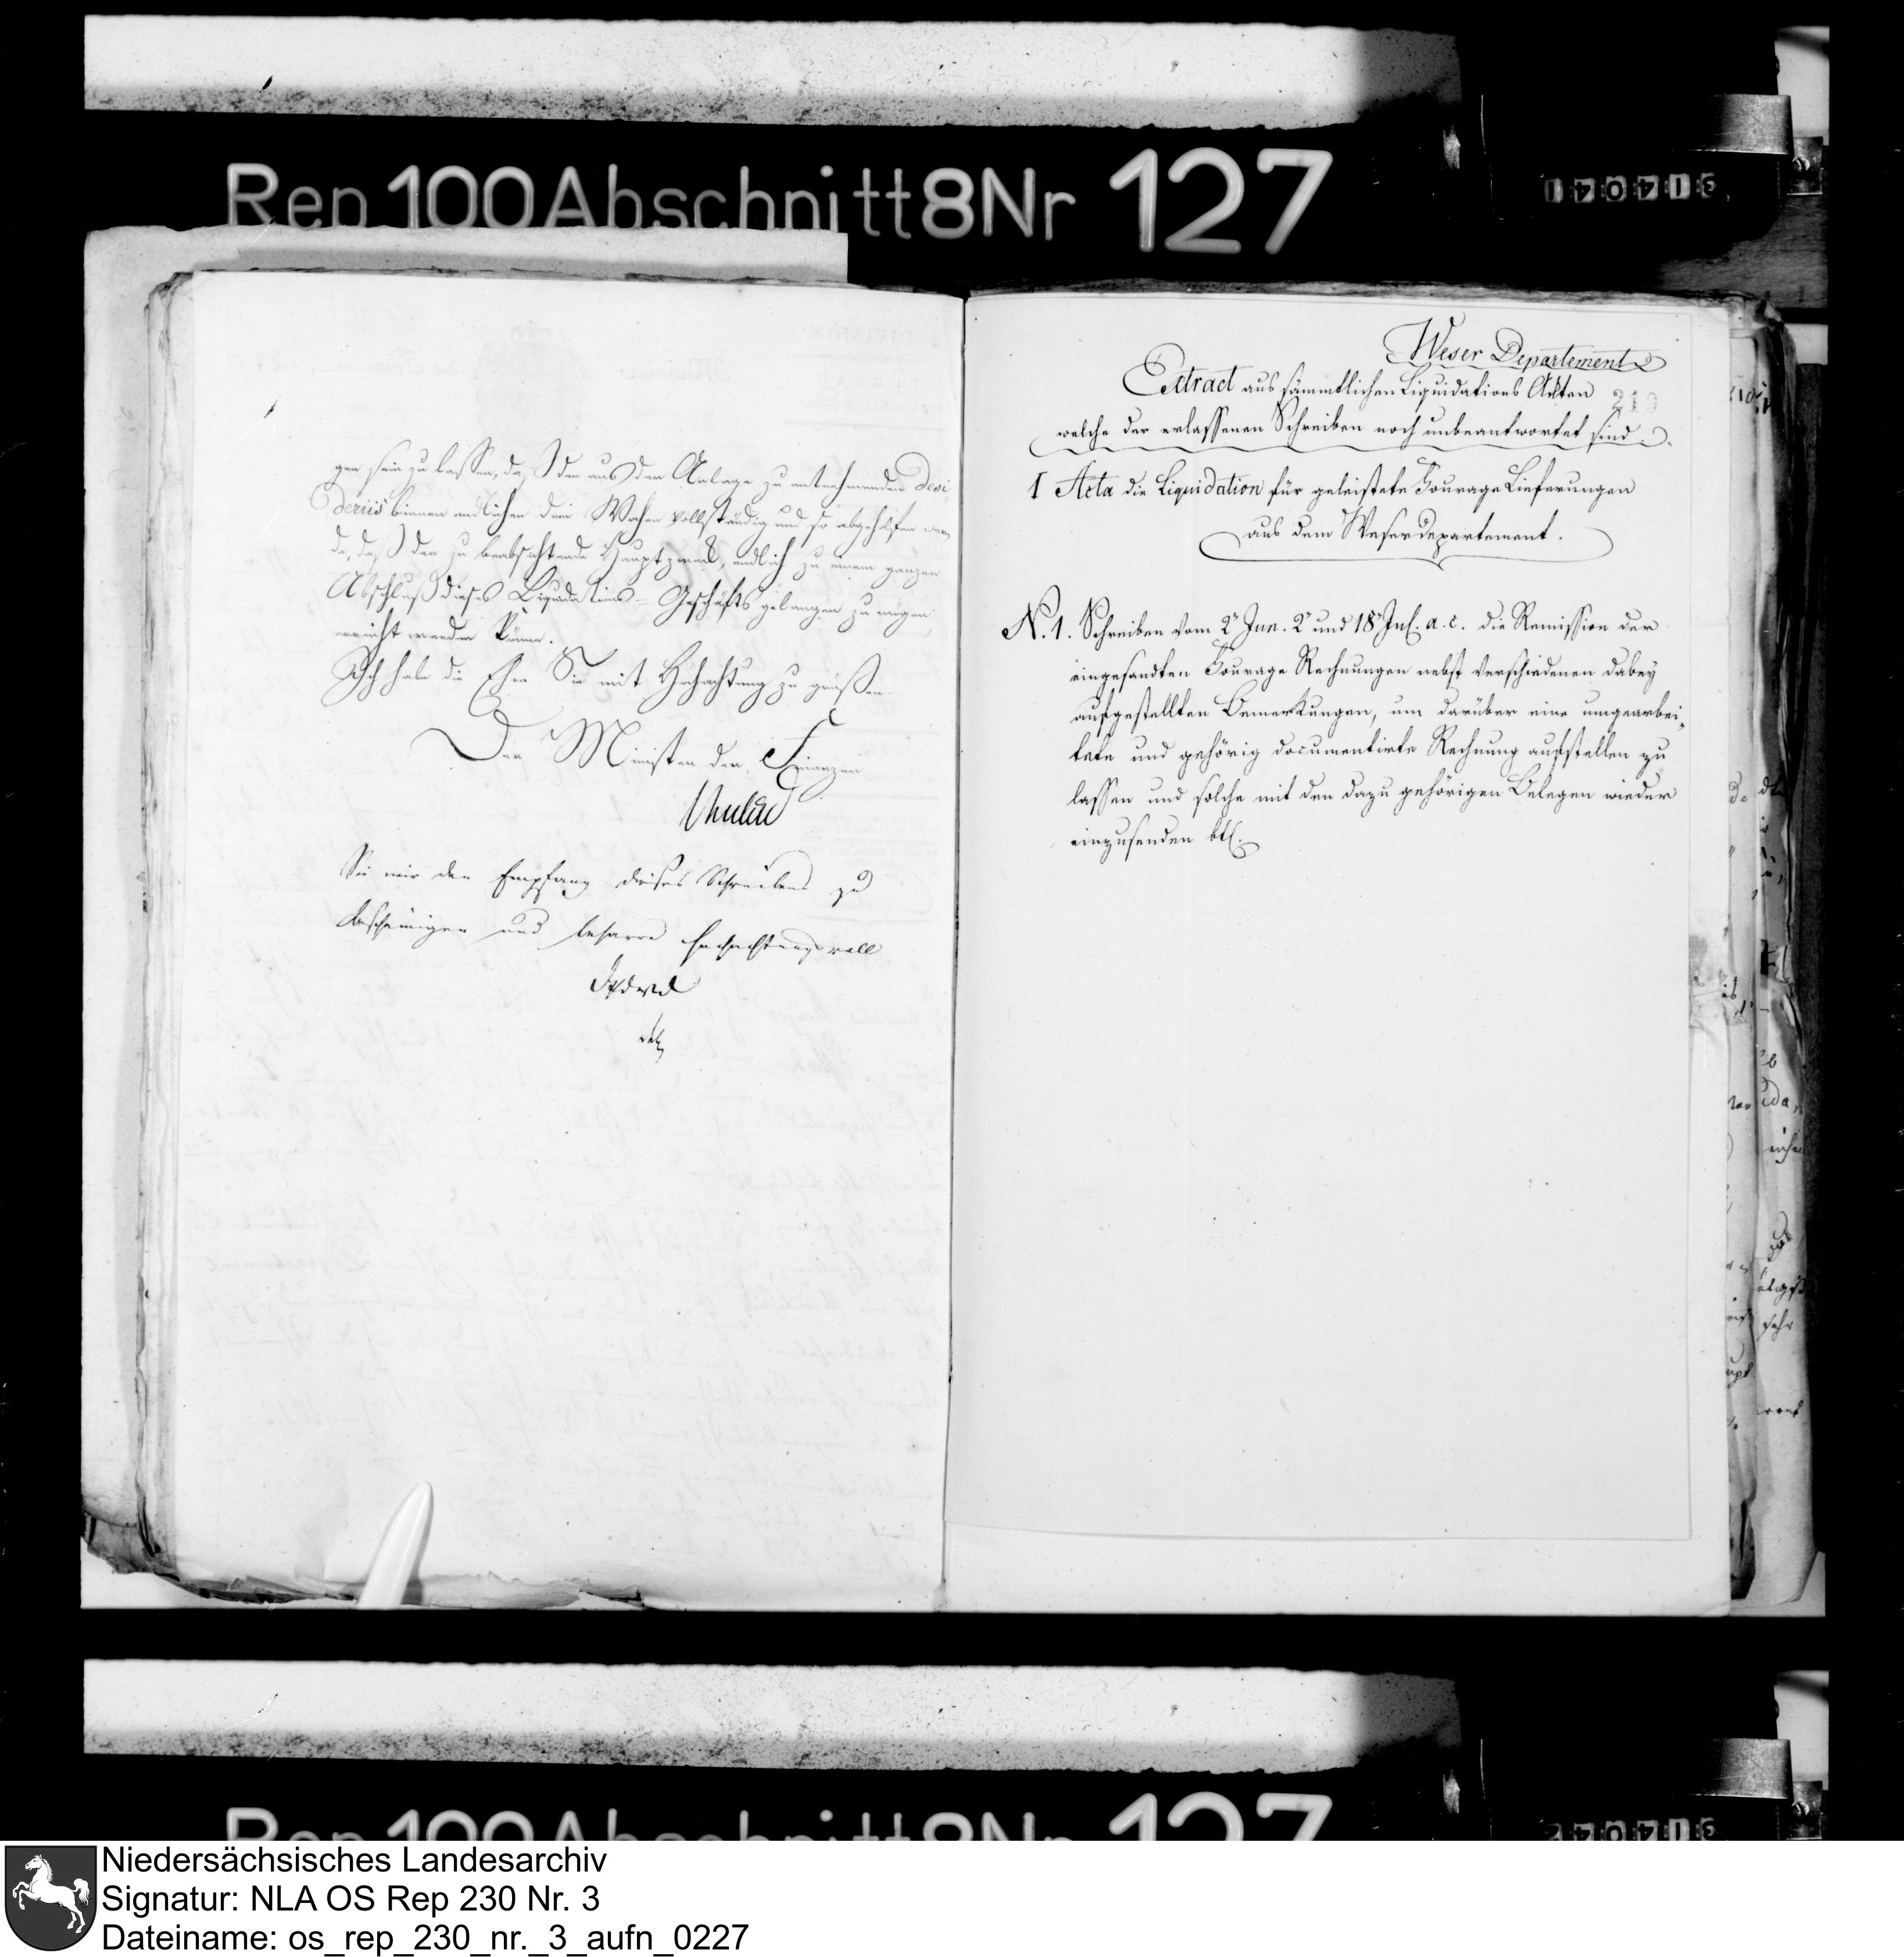 Rep 100 Abschnitt 8 Nr 127
314041
gen sein zu lassen, daß den aus der Anlage zu entnehmenden desi
deriis binnen endlichen drei Wochen vollständig und so abgeholfen wer
de, daß der zu beabsichtende Hauptzweck, endlich zu einem ganzen
Abschluß dieses Liquidations-Geschäfts gelangen zu mögen,
erreicht werden könne.
Ich habe die Ehre Sie mit Hochachtung zu grüßen.
Der Minister der Finanzen
Sie mir den Empfang dieses Schreibens zu
bescheinigen und beharre hochachtungsvoll
Weser Departement
Extract aus sämmtlichen Liquidations Akten
210
welche der erlassenen Schreiben noch unbeantwortet sind.
1 Acta die Liquidation für geleistete Fourage Lieferungen
aus dem Weserdepartement.
N. 1. Schreiben vom 2t Jun. 2t und 18t Jul. a. c. die Remission der
eingesandten Fourage Rechnungen nebst verschiedenen dabey
aufgestellten Bemerkungen, um darüber eine umgearbei-
tete und gehörig documentirte Rechnung aufstellen zu
lassen und solche mit den dazu gehörigen Belegen wieder
einzusenden btf.
Rep 100 Abschnitt 8 Nr 127
Niedersächsisches Landesarchiv
Signatur: NLA OS Rep 230 Nr. 3
Dateiname: os_rep_230_nr._3_aufn_0227